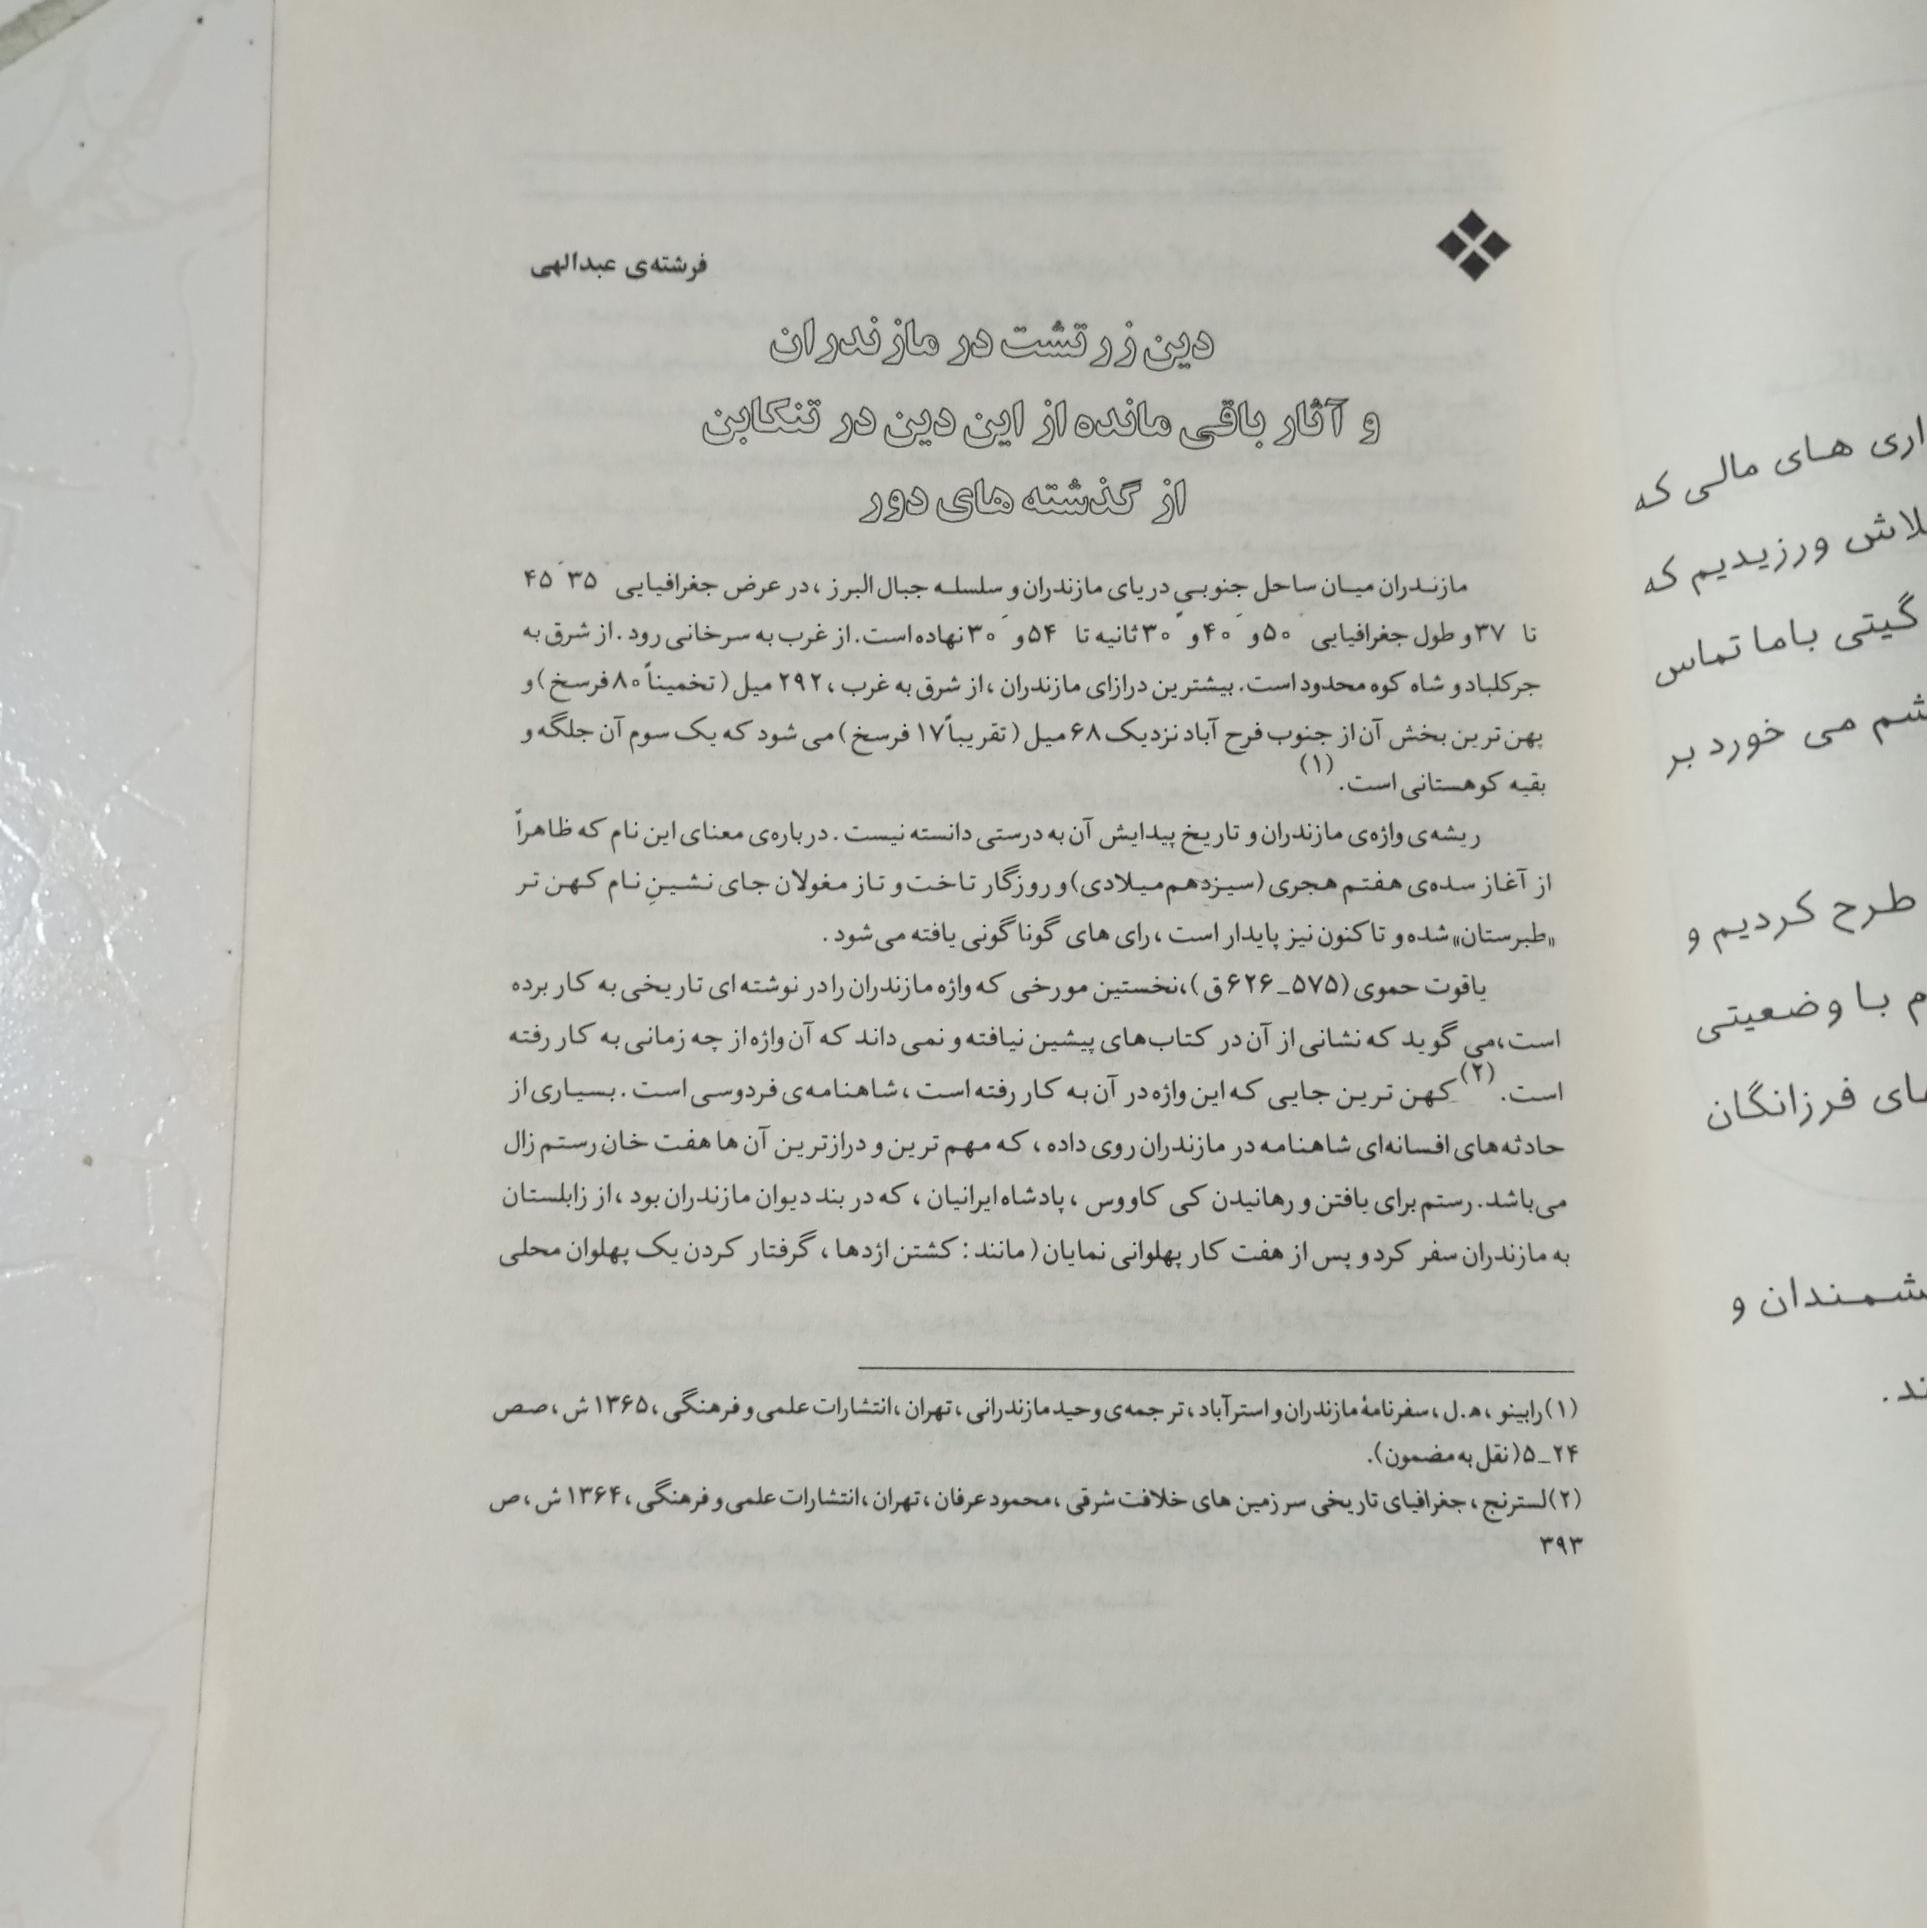 فرشته‌ی عبدالهی
دین زرتشت در مازندران
و آثار باقی مانده از این دین در تنکابن
از گذشته های دور
مازندران میان ساحل جنوبی دریای مازندران و سلسله جبال البرز ، در عرض جغرافیایی ۳۵ ۴۵
تا ۳۷ و طول جغرافیایی ۵۰ و ۴۰ و ۳۰ ثانیه تا ۵۴ و ۳۰ نهاده است. از غرب به سرخانی رود . از شرق به
جرکلباد و شاه کوه محدود است. بیشترین درازای مازندران ، از شرق به غرب ، ۲۹۲ میل ( تخمیناً ۸۰ فرسخ ) و
پهن ترین بخش آن از جنوب فرح آباد نزدیک ۶۸ میل ( تقریباً ۱۷ فرسخ ) می شود که یک سوم آن جلگه و
بقیه کوهستانی است. (۱)
ریشه‌ی واژه‌ی مازندران و تاریخ پیدایش آن به درستی دانسته نیست . درباره‌ی معنای این نام که ظاهراً
از آغاز سده‌ی هفتم هجری (سیزدهم میلادی) و روزگار تاخت و تاز مغولان جای نشینِ نام کهن تر
«طبرستان» شده و تاکنون نیز پایدار است ، رای های گوناگونی یافته می‌شود .
یاقوت حموی (۵۷۵_۶۲۶ق)، نخستین مورخی که واژه مازندران را در نوشته ای تاریخی به کار برده
است، می گوید که نشانی از آن در کتاب‌های پیشین نیافته و نمی داند که آن واژه از چه زمانی به کار رفته
است. (۲) کهن ترین جایی که این واژه در آن به کار رفته است ، شاهنامه‌ی فردوسی است . بسیاری از
حادثه‌های افسانه‌ای شاهنامه در مازندران روی داده ، که مهم ترین و درازترین آن ها هفت خان رستم زال
می‌باشد. رستم برای یافتن و رهانیدن کی کاووس ، پادشاه ایرانیان ، که در بند دیوان مازندران بود ، از زابلستان
به مازندران سفر کرد و پس از هفت کار پهلوانی نمایان ( مانند : کشتن اژدها ، گرفتار کردن یک پهلوان محلی
(۱) رابینو ، ه‍.ل ، سفرنامۀ مازندران و استرآباد ، ترجمه‌ی وحید مازندرانی ، تهران ، انتشارات علمی و فرهنگی ، ۱۳۶۵ ش ، صص
۲۴_۵ (نقل به مضمون).
(۲) لسترنج ، جغرافیای تاریخی سرزمین های خلافت شرقی ، محمود عرفان ، تهران ، انتشارات علمی و فرهنگی ، ۱۳۶۴ ش ، ص
۳۹۳
های مالی که
ورزیدیم که
گیتی با ما تماس
می خورد بر
طرح کردیم و
با وضعیتی
فرزانگان
و